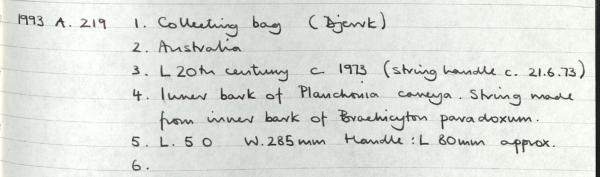 1993 A. 219 1. Collecting bag (Djerrk)
2. Australia
3. L 20th century c 1973 (string handle c. 21.6.73)
4. Inner bark of Planchonia careya. String made
from inner bark of Brachicyton paradoxum.
5. L. 50 W. 285mm Handle: L 80mm approx.
6.